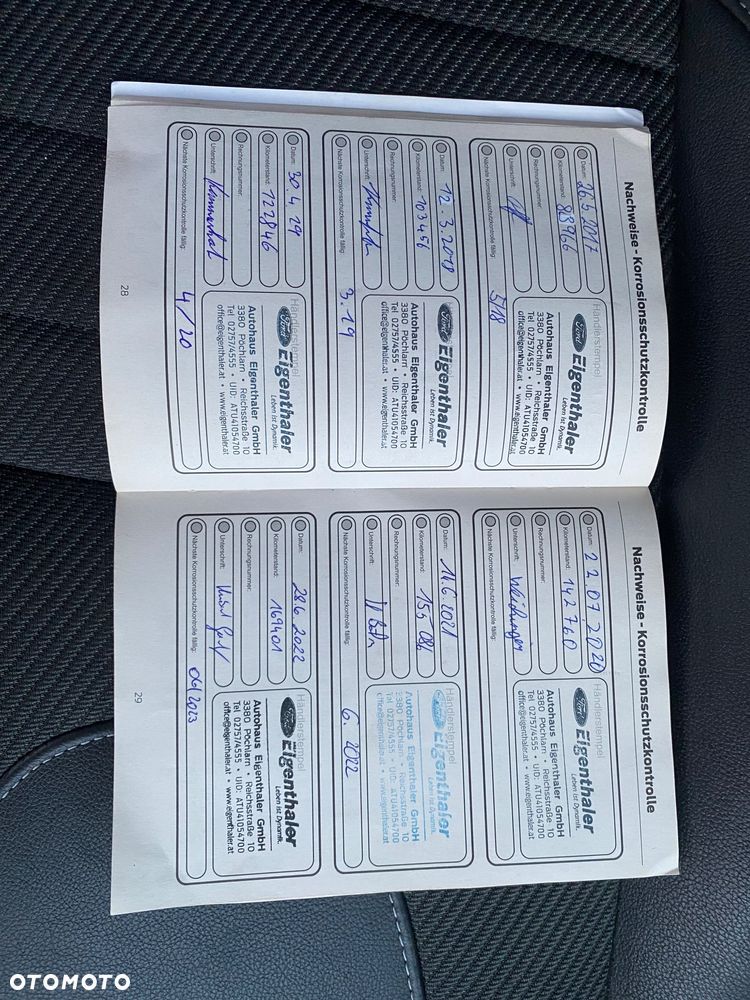 Nachweise - Korrosionsschutzkontrolle
Datum: 26.5.2017
Kilometerstand: 88966
Rechnungsnummer:
Unterschrift:
Nächste Korrosionsschutzkontrolle fällig: 5/18
Händlerstempel
Ford Eigenthaler
Leben ist Dynamik.
Autohaus Eigenthaler GmbH
3380 Pöchlarn • Reichsstraße 10
Tel 02757/4555 • UID: ATU41054700
office@eigenthaler.at • www.eigenthaler.at
Datum: 12.3.2018
Kilometerstand: 103456
Rechnungsnummer:
Unterschrift:
Nächste Korrosionsschutzkontrolle fällig: 3.19
Ford Eigenthaler
Leben ist Dynamik.
Autohaus Eigenthaler GmbH
3380 Pöchlarn • Reichsstraße 10
Tel 02757/4555 • UID: ATU41054700
office@eigenthaler.at • www.eigenthaler.at
Datum: 30.4.19
Kilometerstand: 122846
Rechnungsnummer:
Unterschrift:
Nächste Korrosionsschutzkontrolle fällig: 4/20
Händlerstempel
Ford Eigenthaler
Leben ist Dynamik.
Autohaus Eigenthaler GmbH
3380 Pöchlarn • Reichsstraße 10
Tel 02757/4555 • UID: ATU41054700
office@eigenthaler.at • www.eigenthaler.at
28
Nachweise - Korrosionsschutzkontrolle
Datum: 22.07.2020
Kilometerstand: 142760
Rechnungsnummer:
Unterschrift:
Nächste Korrosionsschutzkontrolle fällig:
Händlerstempel
Ford Eigenthaler
Leben ist Dynamik.
Autohaus Eigenthaler GmbH
3380 Pöchlarn • Reichsstraße 10
Tel 02757/4555 • UID: ATU41054700
office@eigenthaler.at • www.eigenthaler.at
Datum: 14.6.2021
Kilometerstand:
Rechnungsnummer:
Unterschrift:
Nächste Korrosionsschutzkontrolle fällig: 6.2022
Händlerstempel
Ford Eigenthaler
Leben ist Dynamik.
Autohaus Eigenthaler GmbH
3380 Pöchlarn • Reichsstraße 10
Tel 02757/4555 • UID: ATU41054700
office@eigenthaler.at • www.eigenthaler.at
Datum: 28.6.2022
Kilometerstand: 169401
Rechnungsnummer:
Unterschrift:
Nächste Korrosionsschutzkontrolle fällig: 06/2023
Händlerstempel
Ford Eigenthaler
Leben ist Dynamik.
Autohaus Eigenthaler GmbH
3380 Pöchlarn • Reichsstraße 10
Tel 02757/4555 • UID: ATU41054700
office@eigenthaler.at • www.eigenthaler.at
29
OTOMOTO